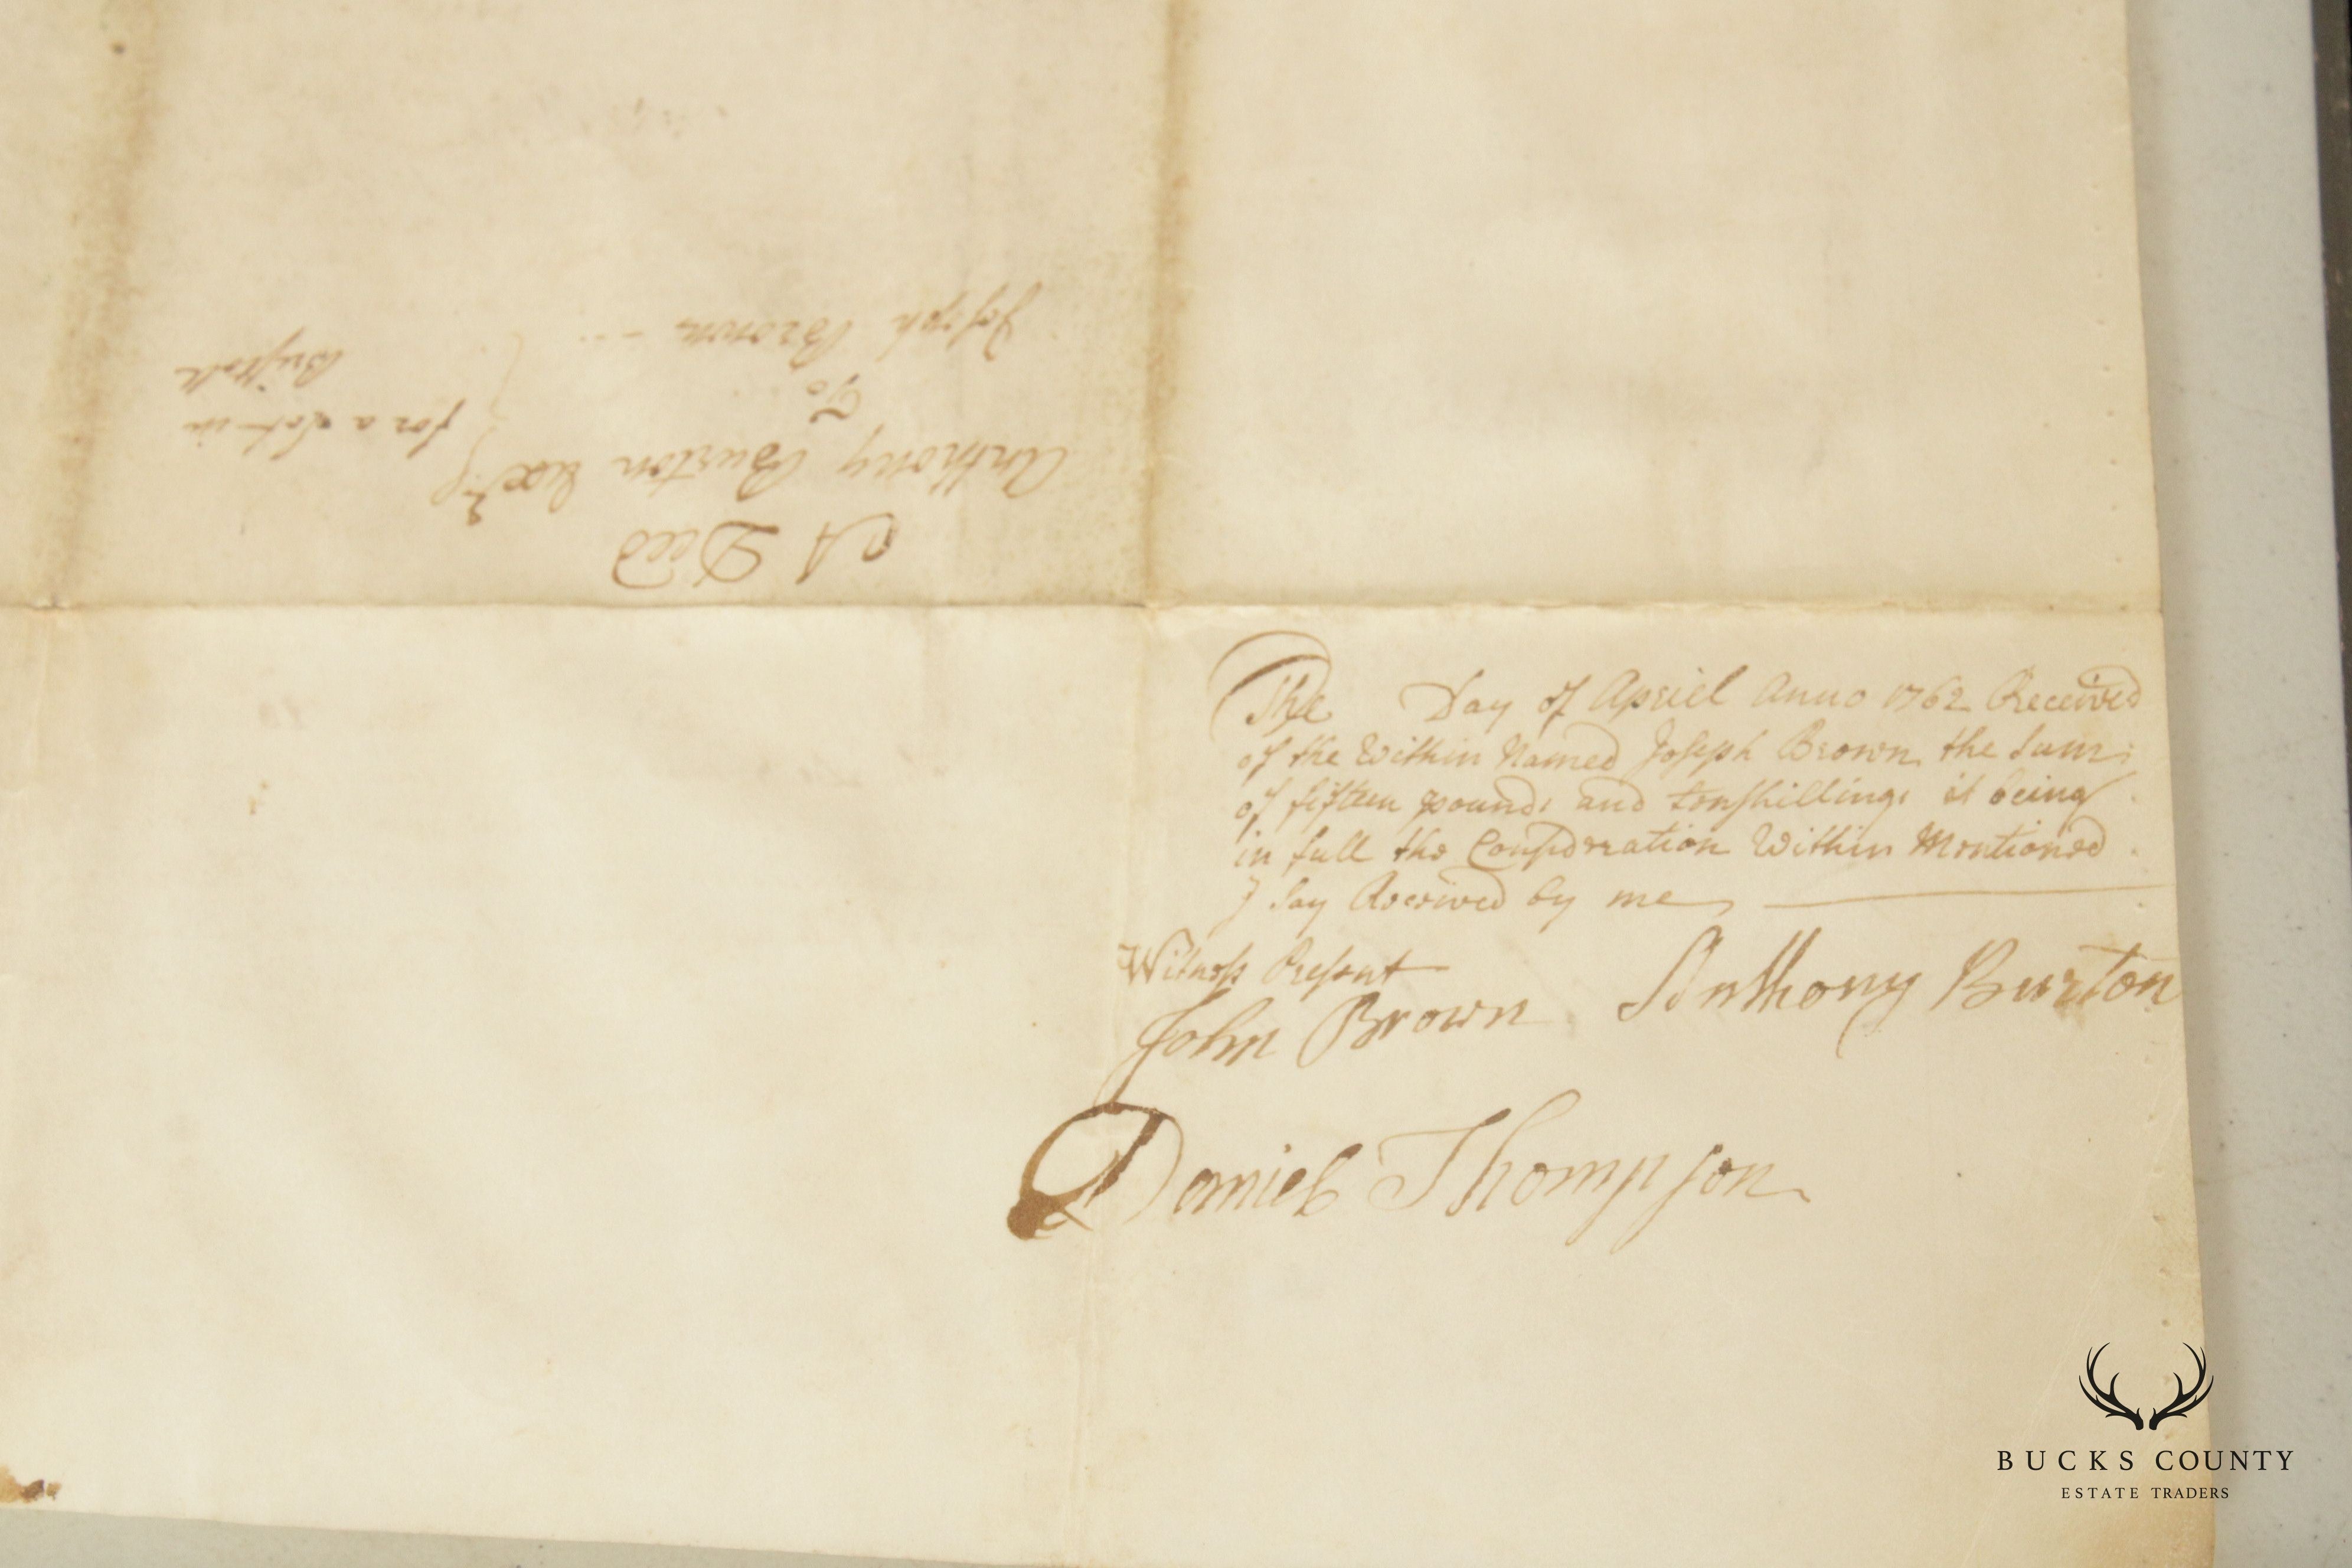 A Deed
Anthony Burton Exe:r
To
Joseph Brown
for a Lot in
Bristoll
The Day of Apriel Anno 1762 Received
of the Within Named Joseph Brown the Sum
of fifteen pounds and ten shillings it being
in full the Consideration Within Mentioned
I Say Received by me
Witness Present
John Brown Anthony Burton
Daniel Thompson
BUCKS COUNTY
ESTATE TRADERS